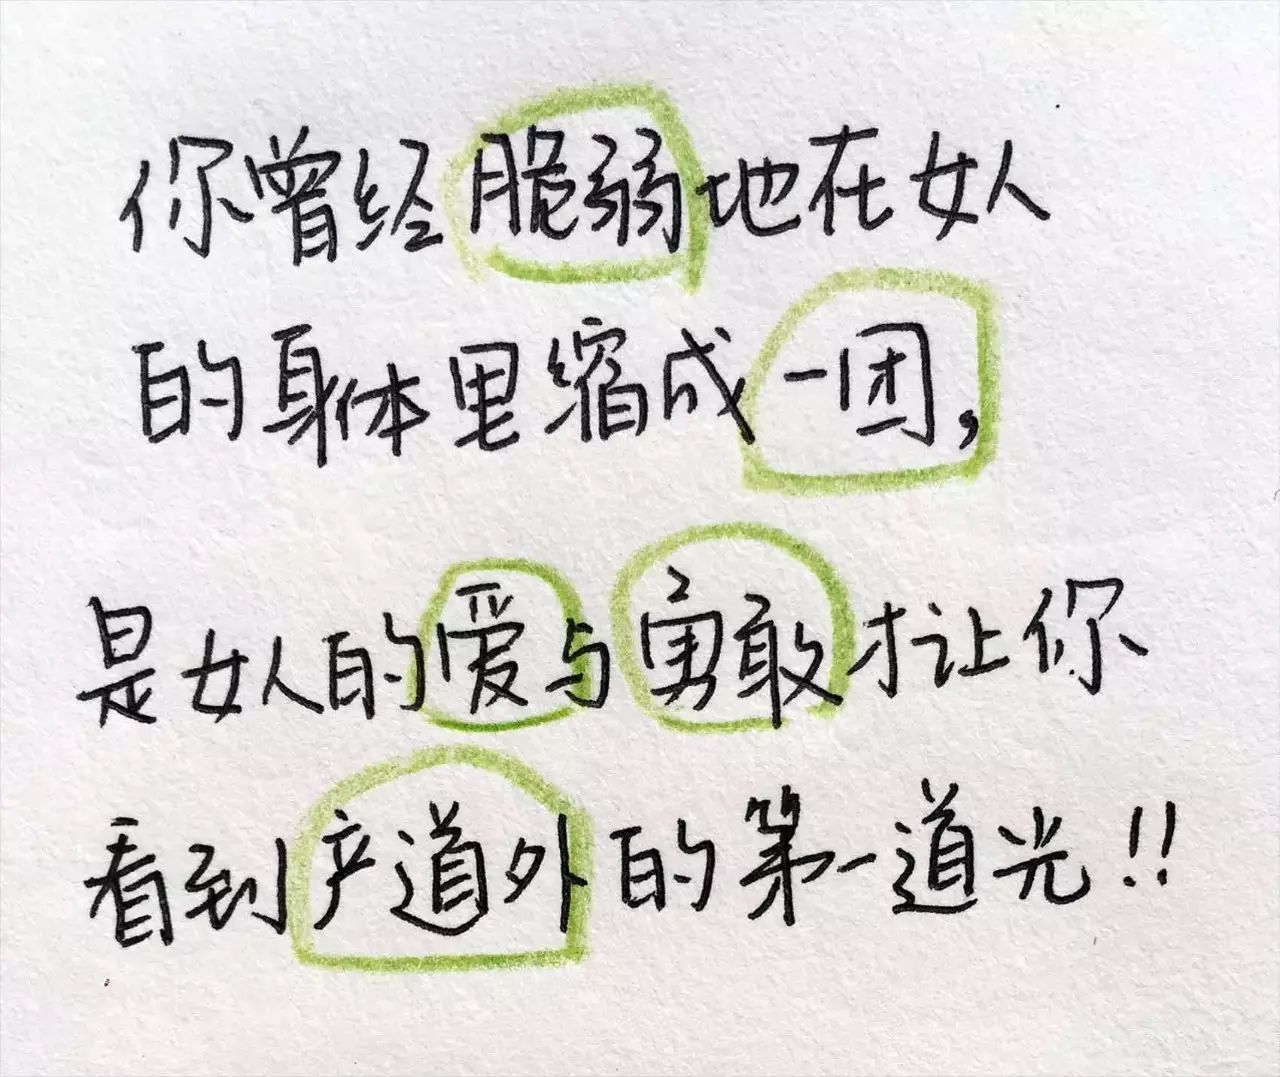 你曾经脆弱地在女人
的身体里缩成一团,
是女人的爱与勇敢才让你
看到产道外的第一道光!!